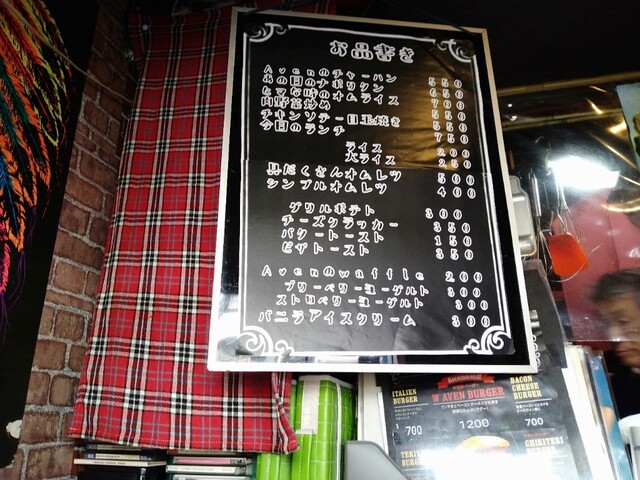 お品書き
Avenのチャーハン 550
あの日のナポリタン 650
ヒマな時のオムライス 700
肉野菜炒め 550
チキンソテー目玉焼き 550
今日のランチ 750
ライス 200
大ライス 250
具だくさんオムレツ 500
シンプルオムレツ 400
グリルポテト 300
チーズクラッカー 350
バタートースト 150
ピザトースト 350
Avenのwaffle 200
ブリーベリーヨーグルト 300
ストロベリーヨーグルト 300
バニラアイスクリーム 300
ITALIEN BURGER
700
W AVEN BURGER
1200
BACON CHEESE BURGER
700
CHIKITERI